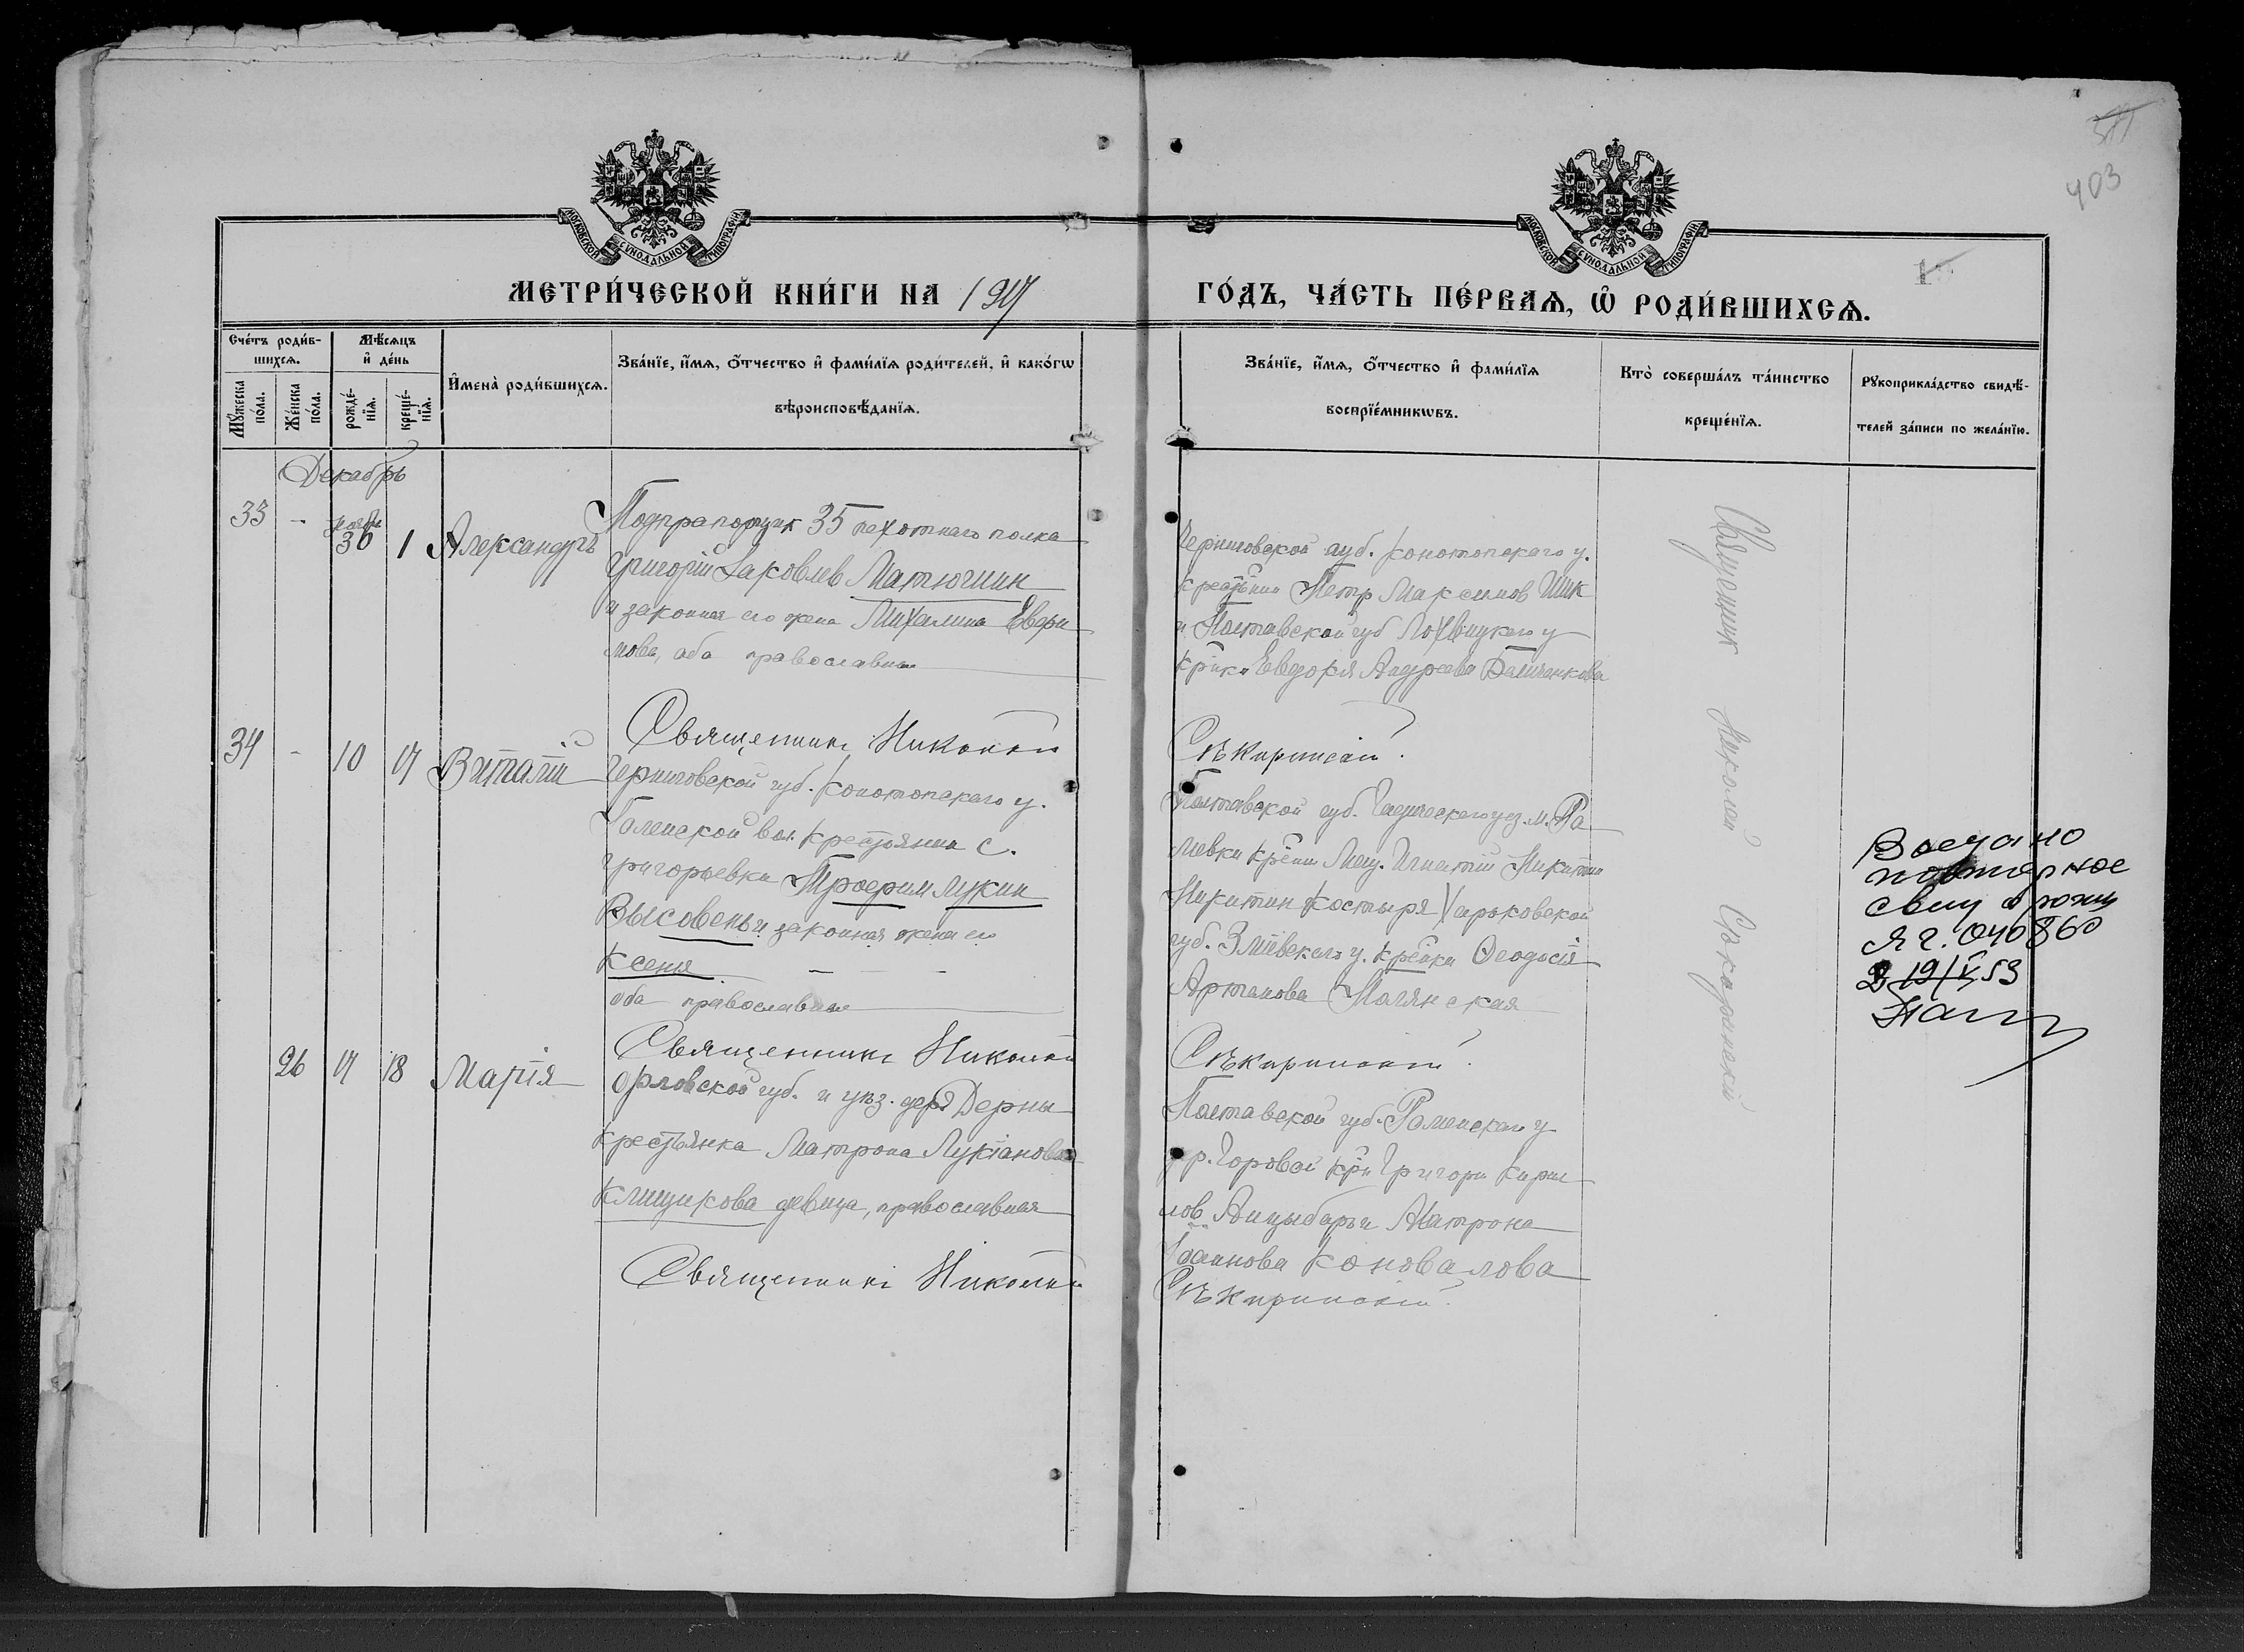 403
МОСКОВСКОЙ СѴНОДАЛЬНОЙ ТИПОГРАФІИ
МОСКОВСКОЙ СѴНОДАЛЬНОЙ ТИПОГРАФІИ
МЕТРИ́ЧЕСКОЙ КНИ́ГИ НА 1917 ГО́ДЪ, ЧА́СТЬ ПЕ́РВАѦ, Ѡ҆ РОДИ́ВШИХСѦ.
Сче́тъ роди́в-
шихсѧ.
Мѣ́сѧцъ
и҆ де́нь
Мꙋ́жеска
по́ла.
Же́нска
по́ла.
рожде́-
нїѧ.
креще́-
нїѧ.
И҆мена̀ роди́вшихсѧ.
Зва́нїе, и҆́мѧ, ѻ҆́тчество и҆ фами́лїѧ роди́телей, и҆ како́гѡ
вѣроисповѣ́данїѧ.
Зва́нїе, и҆́мѧ, ѻ҆́тчество и҆ фами́лїѧ
воспрїе́мникѡвъ.
Кто̀ соверша́лъ та́инство
креще́нїѧ.
Рꙋкоприкла́дство свидѣ́-
телей за́писи по жела́нїю.
Декабрь
33 - 30 1 Александръ
Подпрапорщик 35 пехотнаго полка
Григорій Яковлев Матюшин
и законная его жена Михалина
оба православные
Черниговской губ. Конотопскаго у.
крестьянин Петр Максимов Шик
и Полтавской губ Лохвицкаго у
Евдокія Андреева
Священникъ Николай Сѣкиринскій.
34 - 10 17 Виталій
Черниговской губ. Конотопскаго у.
вол. крестьянин с.
Григорьевки Трофим Лукин
Высовень и законная жена его
Ксения - -
оба православные
Полтавской губ. Гадяческаго уез. м. Ра
шевки Игнатій Никитин
Никитин Костыря Харьковской
губ. Зміевскаго у. Феодосія
Артамова
Священникъ Николай Сѣкиринскій.
26 17 18 Марія
Орловской губ. и уѣз. дер. Дерны
крестьянка Матрона Лукіанова
Клищикова девица, православная
Полтавской губ. Роменскаго у
Григори Кирил
лов Анцыбарь и Матрона
Іоаннова Коновалова
Священникъ Николай Сѣкиринскій.
Священник Николай Сѣкиринскій
Выдано
повторное
свид о рожд
ЯГ. 040860
19/V 53